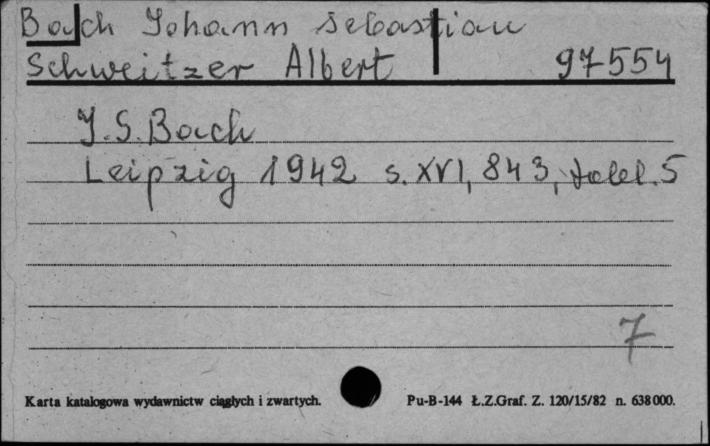 Bach Johann Sebastian
Schweitzer Albert 97554
J.S. Bach
Leipzig 1942 s. XVI, 843, tabl. 5
7
Karta katalogowa wydawnictw ciągłych i zwartych. Pu-B-144 Ł.Z.Graf. Z. 120/15/82 n. 638000.